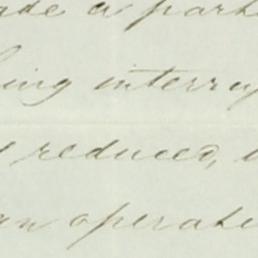 ade a part
ing interrup
reduced,
an operate